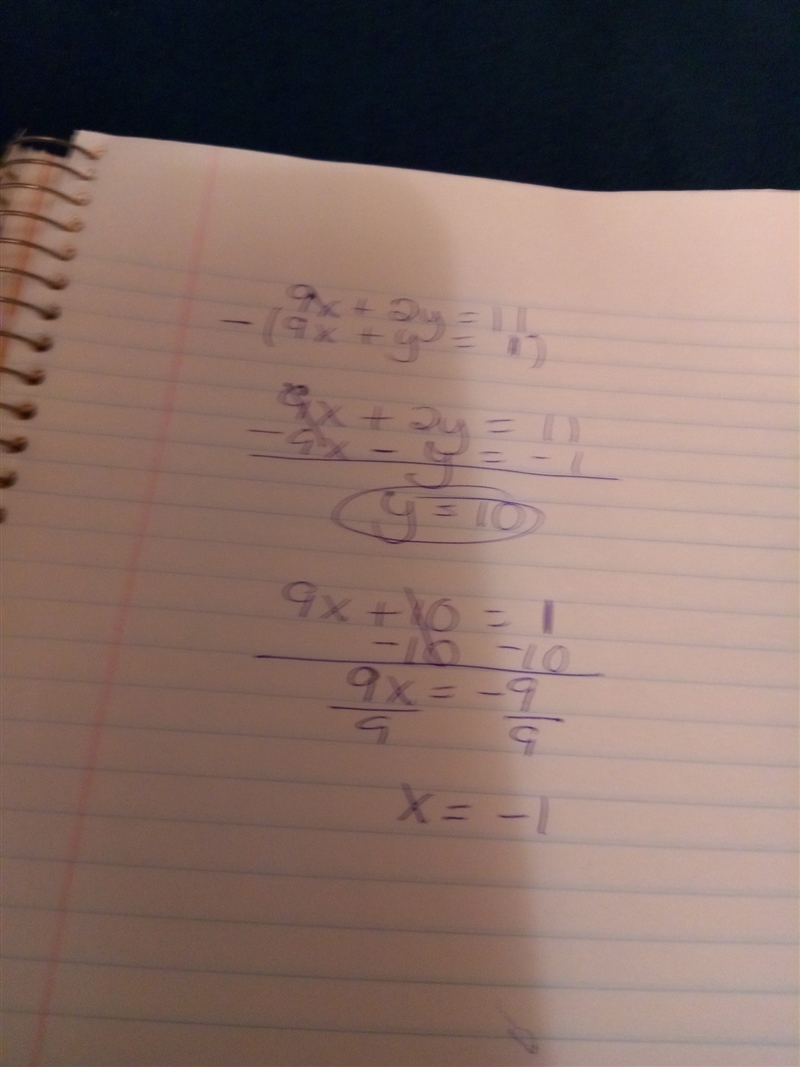 9x + 2y = 11
-(9x + y = 1)
9x + 2y = 11
-9x - y = -1
y = 10
9x + 10 = 1
-10 -10
9x = -9
9 9
x = -1